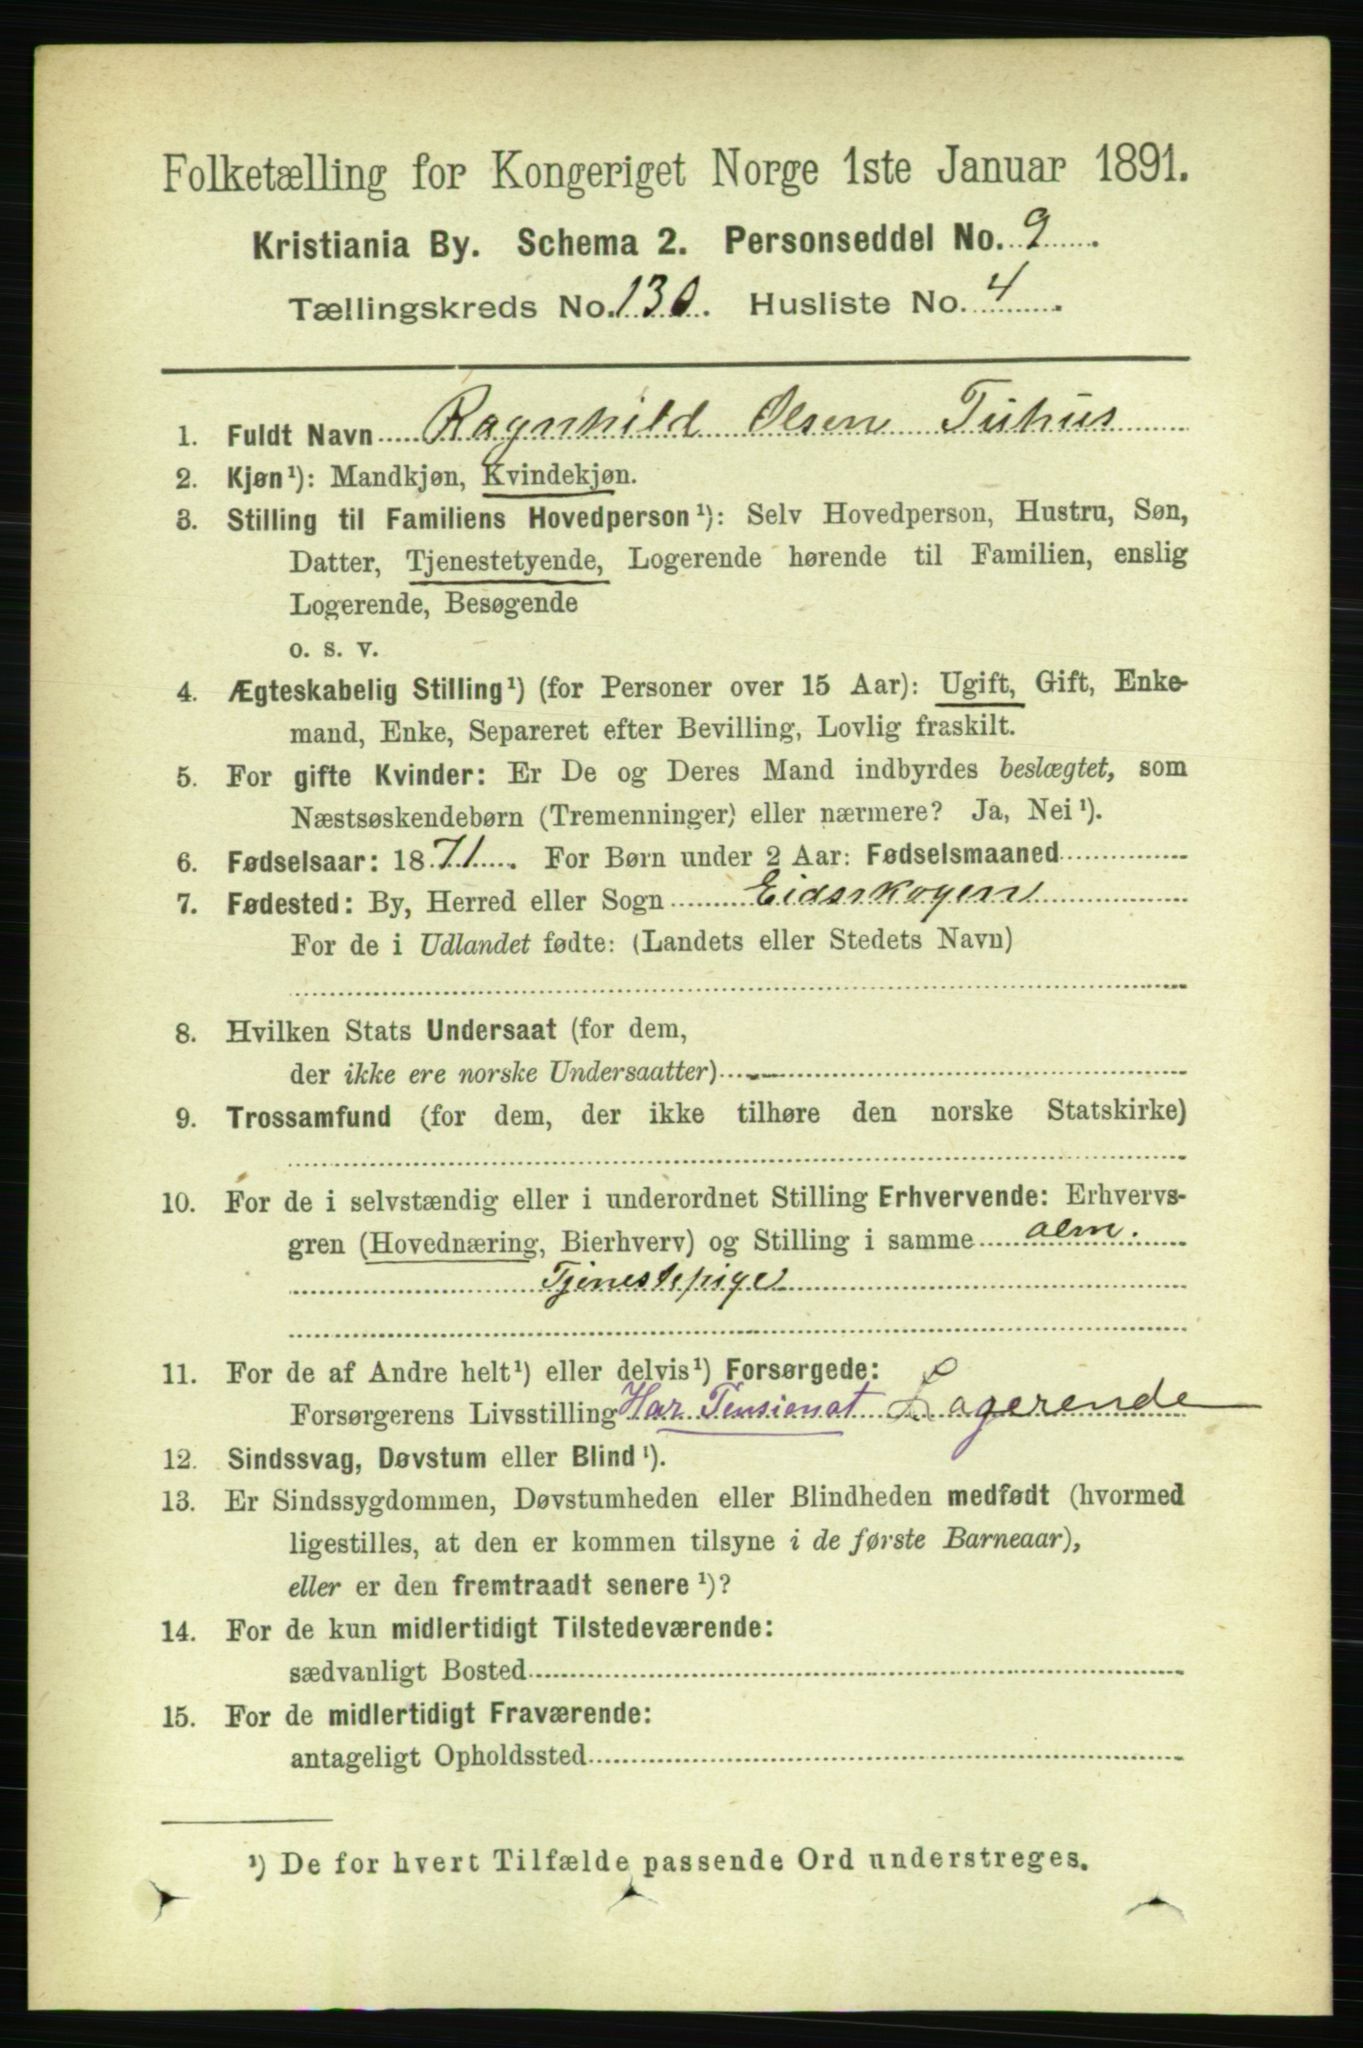 Folketælling for Kongeriget Norge 1ste Januar 1891.
Kristiania By. Schema 2. Personseddel No. 9.
Tællingskreds No. 130. Husliste No. 4.
1. Fuldt Navn Ragnhild Olsen Tuhus
2. Kjøn¹): Mandkjøn, Kvindekjøn.
3. Stilling til Familiens Hovedperson¹): Selv Hovedperson, Hustru, Søn,
Datter, Tjenestetyende, Logerende hørende til Familien, enslig
Logerende, Besøgende
o. s. v.
4. Ægteskabelig Stilling¹) (for Personer over 15 Aar): Ugift, Gift, Enke-
mand, Enke, Separeret efter Bevilling, Lovlig fraskilt.
5. For gifte Kvinder: Er De og Deres Mand indbyrdes beslægtet, som
Næstsøskendebørn (Tremenninger) eller nærmere? Ja, Nei¹).
6. Fødselsaar: 1871. For Børn under 2 Aar: Fødselsmaaned
7. Fødested: By, Herred eller Sogn Eidsskogen
For de i Udlandet fødte: (Landets eller Stedets Navn)
8. Hvilken Stats Undersaat (for dem,
der ikke ere norske Undersaatter)
9. Trossamfund (for dem, der ikke tilhøre den norske Statskirke)
10. For de i selvstændig eller i underordnet Stilling Erhvervende: Erhvervs-
gren (Hovednæring, Bierhverv) og Stilling i samme alm.
Tjenestepige
11. For de af Andre helt¹) eller delvis¹) Forsørgede:
Forsørgerens Livsstilling Har Pensionat Logerende
12. Sindssvag, Døvstum eller Blind¹).
13. Er Sindssygdommen, Døvstumheden eller Blindheden medfødt (hvormed
ligestilles, at den er kommen tilsyne i de første Barneaar),
eller er den fremtraadt senere¹)?
14. For de kun midlertidigt Tilstedeværende:
sædvanligt Bosted
15. For de midlertidigt Fraværende:
antageligt Opholdssted
¹) De for hvert Tilfælde passende Ord understreges.